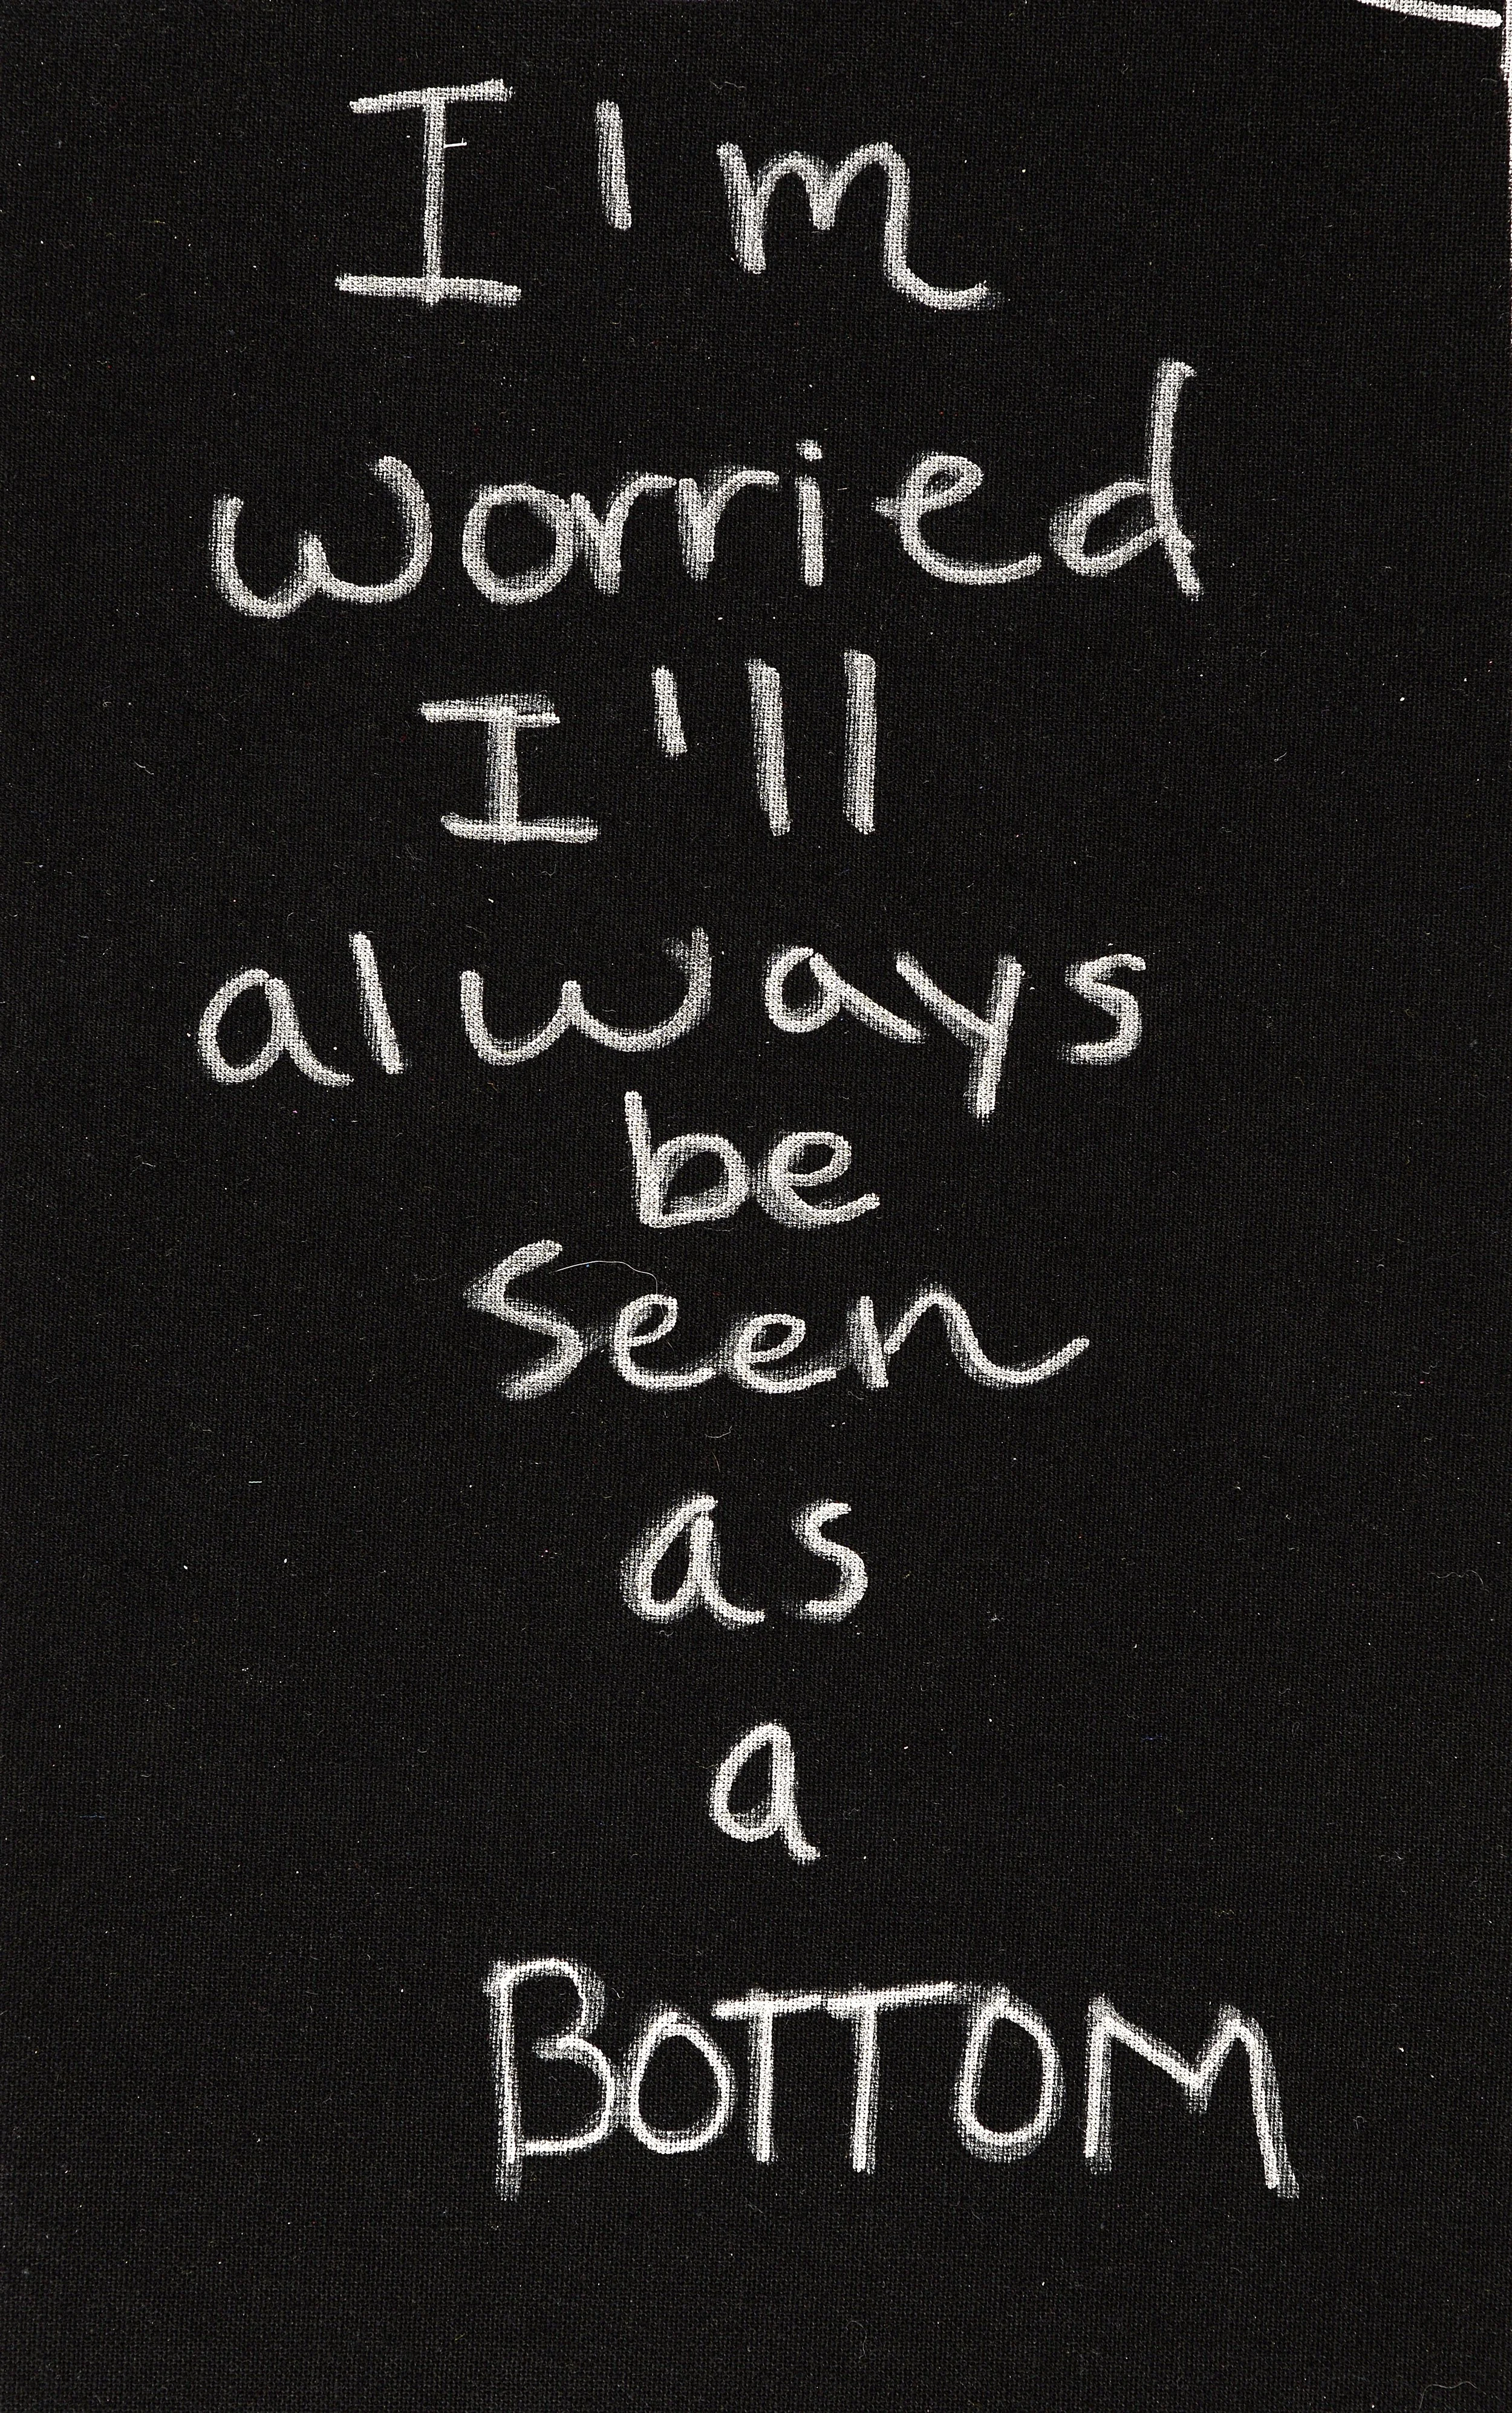 I'm
worried
I'll
always
be
Seen
as
a
BOTTOM